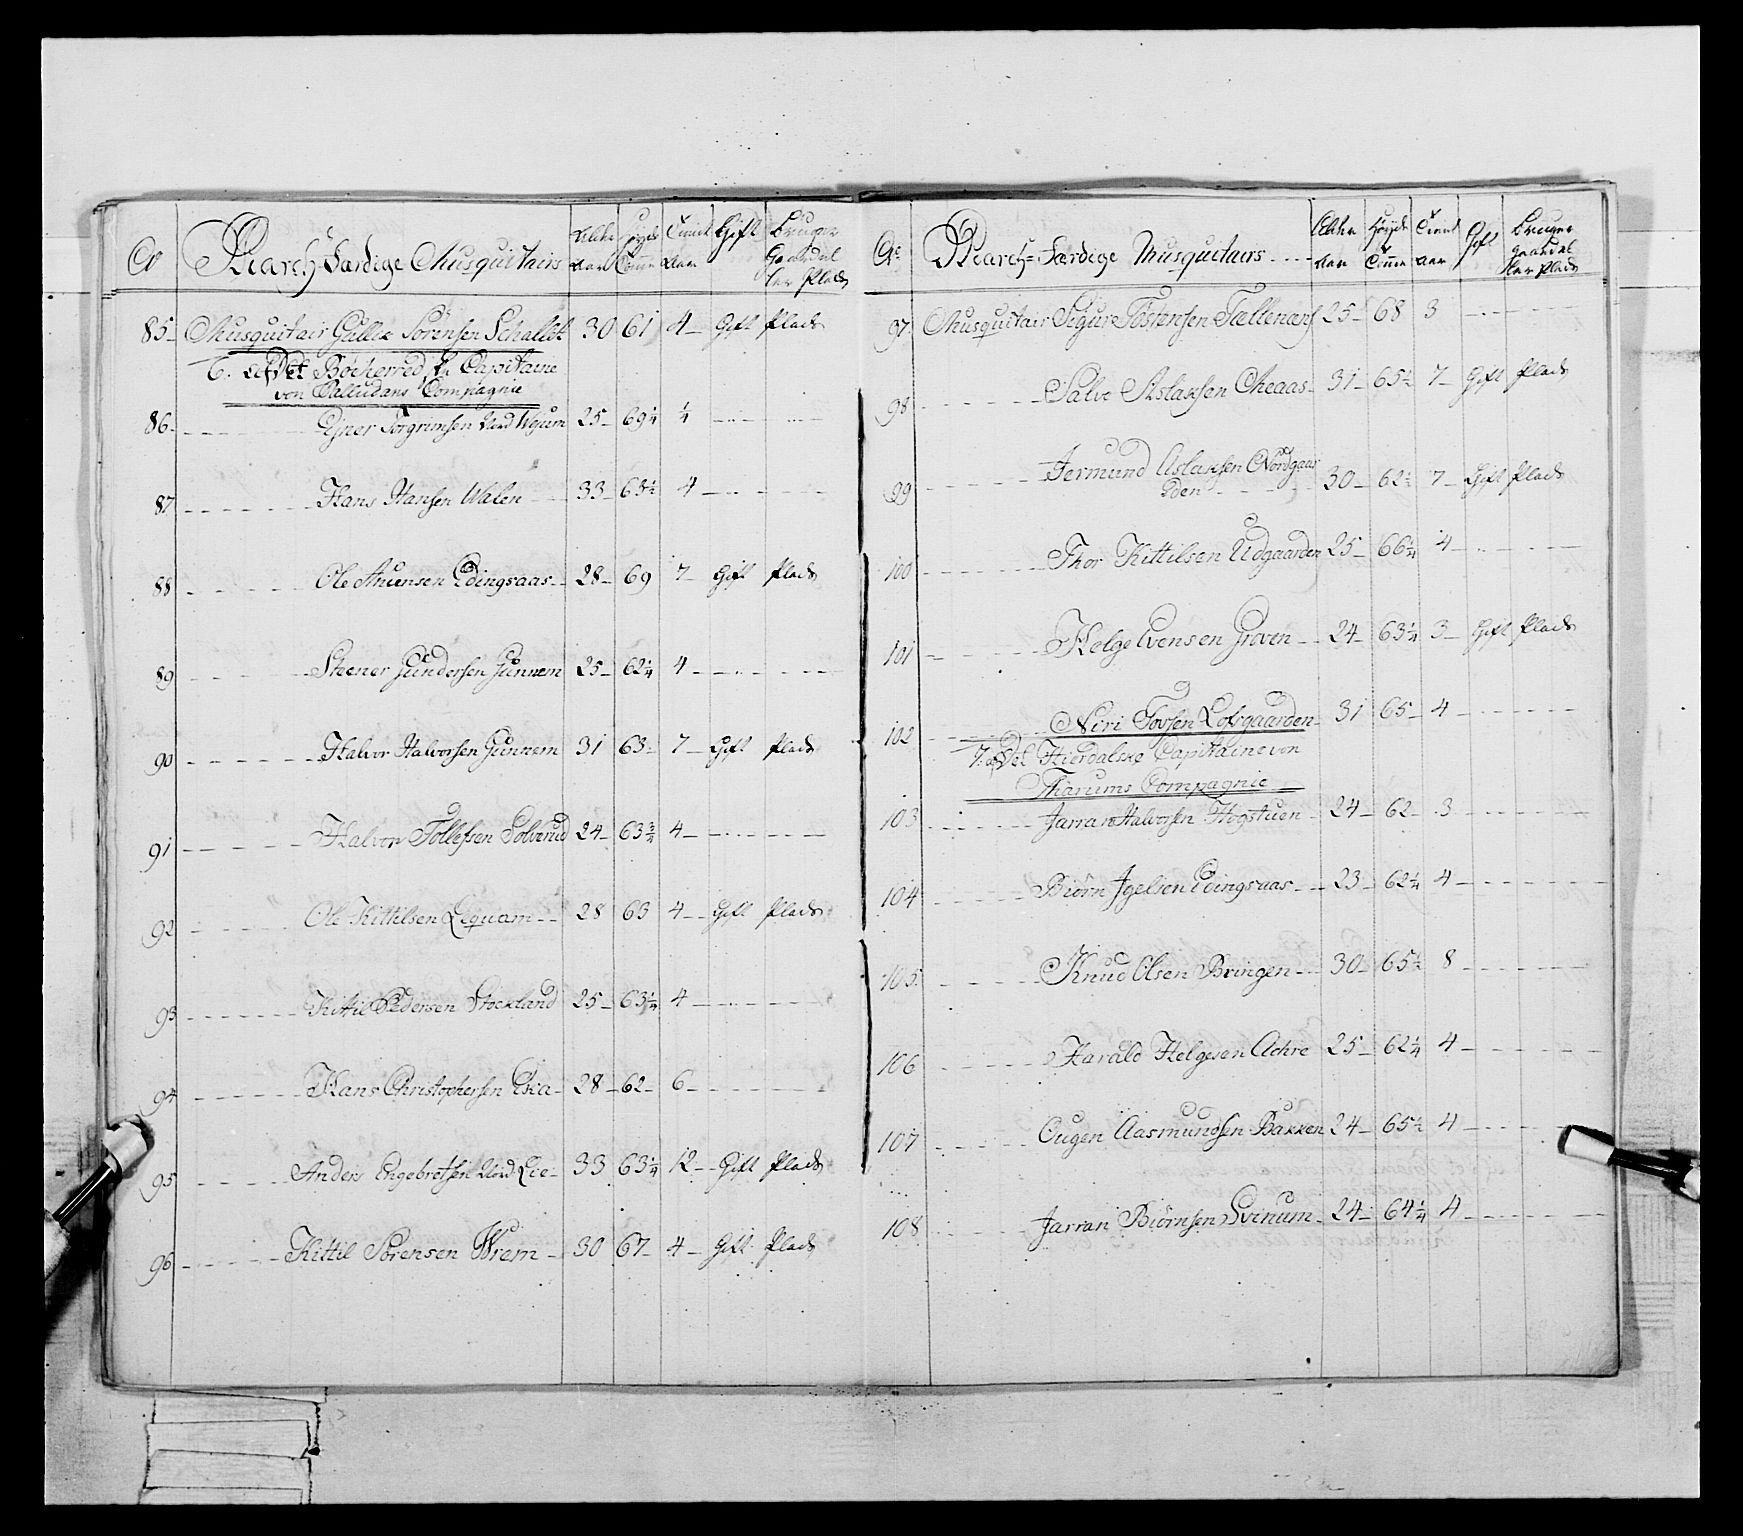 No March-Færdige Musquitairs Alder Aar Høyde Tomme Tient Aar Gift Bruger Gaard el ler Plads
85 Musquitair Gullic Sörensen Schaldt 30 61 4 Gift Plads
6. af Det Böeherred.
Capitaine
von Palludans Compagnie
86 Ejner Torgrimsen Nord Wejum 25 69¼ ¼
87 Hans Hansen Walen 33 63½ 4
88 Ole Amunsen Edingsaas 28 69 7 Gift Plads
89 Steener Gundersen Gunnem 25 62¼ 4
90 Halvor Halvorsen Gunnem 31 63 7 Gift Plads
91 Halvor Tollefsen Solverud 24 63¾ 4
92 Ole Kittilsen Lequam 28 63 4 Gift Plads
93 Kittil Pedersen Stockland 25 63¼ 4
94 Hans Christophersen Eka 28 62 6
95 Anders Engebretsen Nord Lie 33 63¼ 12 Gift Plads
96 Kittil Sörensen Wrem 30 67 4 Gift Plads
No March-Færdige Musquetairs Alder Aar Høyde Tomme Tient Aar Gift Bruger Gaard el ler Plads
97 Musquitair Sigur Tostensen Tællenæs 25 68 3
98 Salve Aslaksen Meaas 31 65½ 7 Gift Plads
99 Jermund Aslaksen Nordgaar
den 30 62½ 7 Gift Plads
100 Thor Kittilsen Udgaarden 25 66¼ 4
101 Helge Evensen Groven 24 63¼ 3 Gift Plads
102 Niri Tovsen Loftsgaarden 31 65 4
7. af Det Hierdalske Capitaine von
Tharums Compagnie
103 Jarran Halvorsen Hogstuen 24 62 3
104 Biörn Igelsen Edingsaas 23 62¼ 4
105 Knud Olsen Bringen 30 65½ 8
106 Harald Helgesen Aakre 25 62¼ 4
107 Eugen Aasmundsen Bakken 24 65½ 4
108 Jarran Biörnsen Svinum 24 64¼ 4